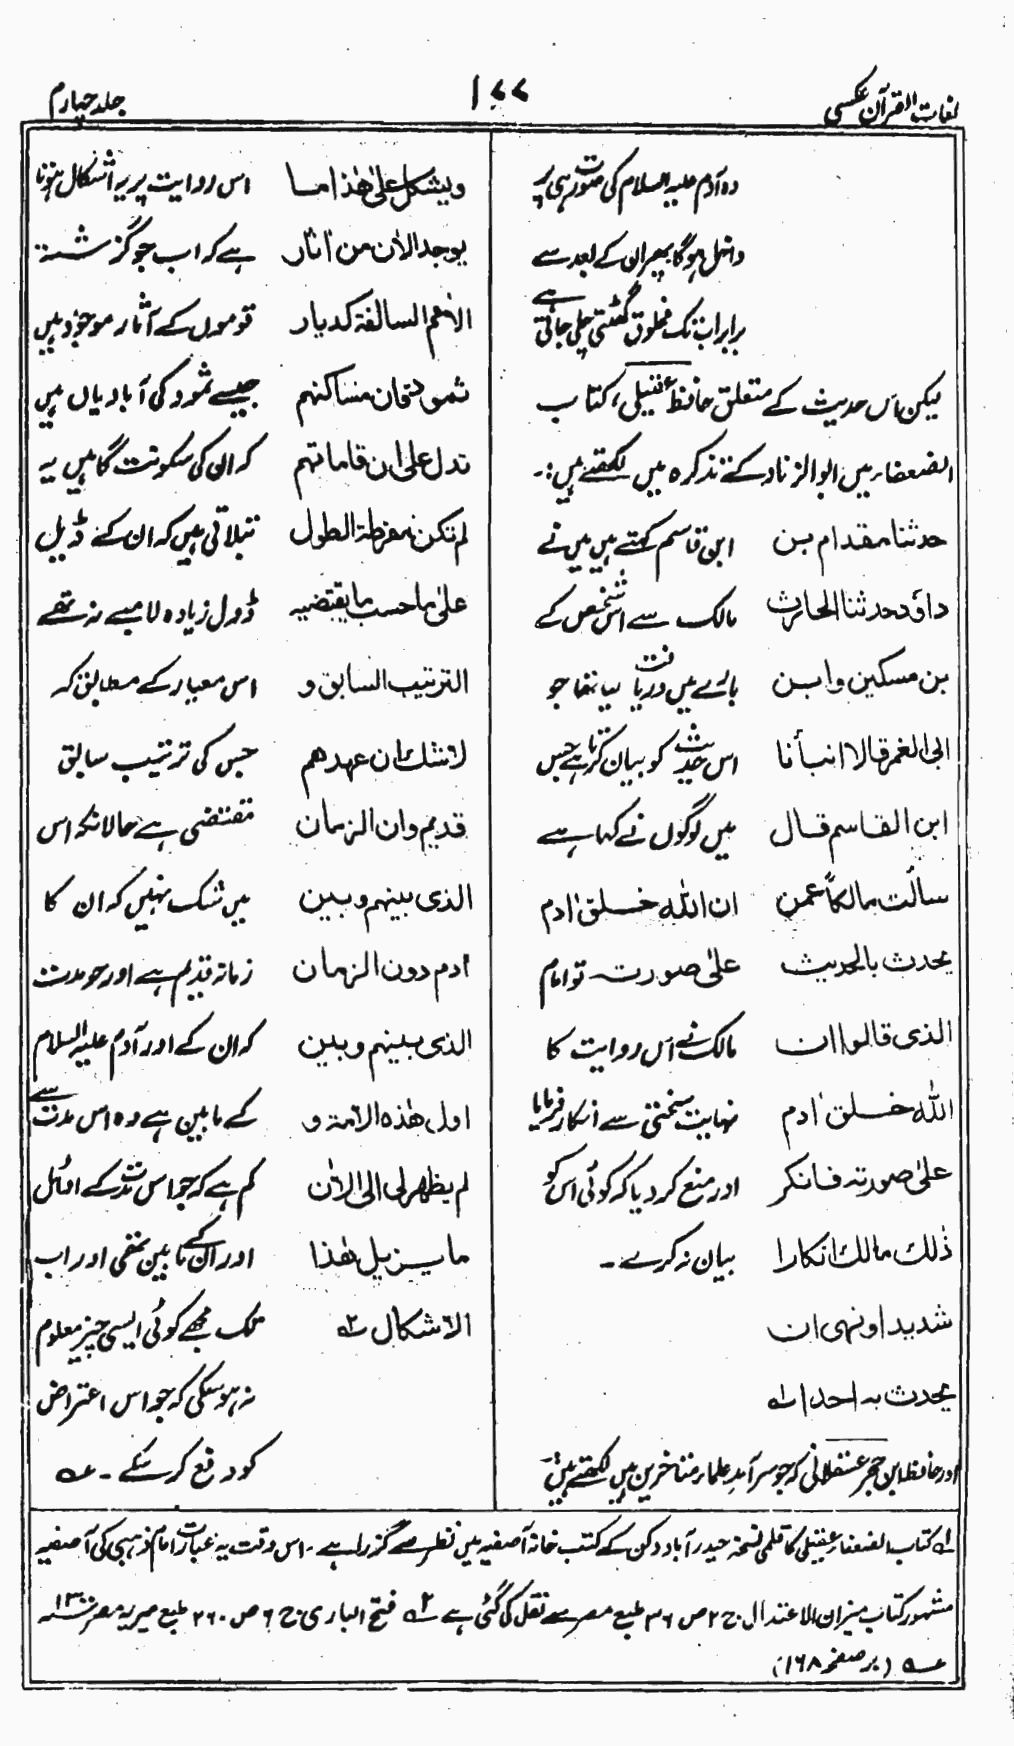 لغات القرآن عکسی
۱۷۷
جلد چہارم
وہ آدم علیہ السلام کی صورت ہی پر
داخل ہوگا پھر ان کے بعد سے
برابر اب تک مخلوق گھٹتی چلی جاتی ہے
لیکن اس حدیث کے متعلق حافظ عقیلی، کتاب
الضعفاء میں ابوالزناد کے تذکرہ میں لکھتے ہیں:۔
حدثنا مقدام بن
داؤد حدثنا الحارث
بن مسکین وابن
ابی الغمر قالا انبأنا
ابن القاسم قال
سألت مالکاً عمن
یحدث بالحدیث
الذی قالوا ان
اللّٰہ خلق اٰدم
علیٰ صورتہ فانکر
ذٰلک مالک انکارا
شدیدا ونہی ان
یحدث بہ احد ۱؎
ابن قاسم کہتے ہیں میں نے
مالک سے اس شخص کے
بارے میں دریافت کیا تھا جو
اس حدیث کو بیان کرتا ہے جس
میں لوگوں نے کہا ہے
ان اللّٰہ خلق اٰدم
علیٰ صورتہ تو امام
مالک نے اس روایت کا
نہایت سختی سے انکار فرمایا
اور منع کر دیا کہ کوئی اس کو
بیان نہ کرے۔
اور حافظ ابن حجر عسقلانی کہ جو سرآمد علماء متاخرین ہیں لکھتے ہیں۔
ویشکل علیٰ ھٰذا ما
یوجد الاٰن من اٰثار
الامم السالفۃ کدیار
ثمود فان مساکنہم
تدل علی ان قاماتہم
لم تکن مفرطۃ الطول
علیٰ ما حسب ما یقتضیہ
الترتیب السابق و
لا شک ان عہدھم
قدیم وان الزمان
الذی بینہم وبین
اٰدم دون الزمان
الذی بینہم وبین
اول ھٰذہ الامۃ و
لم یظہر لی الی الاٰن
ما یزیل ھٰذا
الاشکال ۲؎
اس روایت پر یہ اشکال ہوتا
ہے کہ اب جو گزشتہ
قوموں کے آثار موجود ہیں
جیسے ثمود کی آبادیاں ہیں
کہ ان کی سکونت گاہیں یہ
بتلاتی ہیں کہ ان کے ڈیل
ڈول زیادہ لامبے نہ تھے
اس معیار کے مطابق کہ
جس کی ترتیب سابق
مقتضی ہے حالانکہ اس
میں شک نہیں کہ ان کا
زمانہ قدیم ہے اور جو مدت
کہ ان کے اور آدم علیہ السلام
کے مابین ہے وہ اس مدت سے
کم ہے کہ جو اس امت کے اوائل
اور ان کے مابین تھی اور اب
تک مجھے کوئی ایسی چیز معلوم
نہ ہو سکی کہ جو اس اعتراض
کو دفع کر سکے۔ ۳؎
۱؎ کتاب الضعفاء عقیلی کا قلمی نسخہ حیدرآباد دکن کے کتب خانہ آصفیہ میں نظر سے گزرا ہے۔ اس وقت یہ عبارت امام ذہبی کی آصفیہ
مشہور کتاب میزان الاعتدال ج ۲ ص ۳۶ طبع مصر سے نقل کی گئی ہے ۲؎ فتح الباری ج ۶ ص ۲۶۰ طبع میریہ مصر
۳؎ (بر صفحہ ۱۶۸)